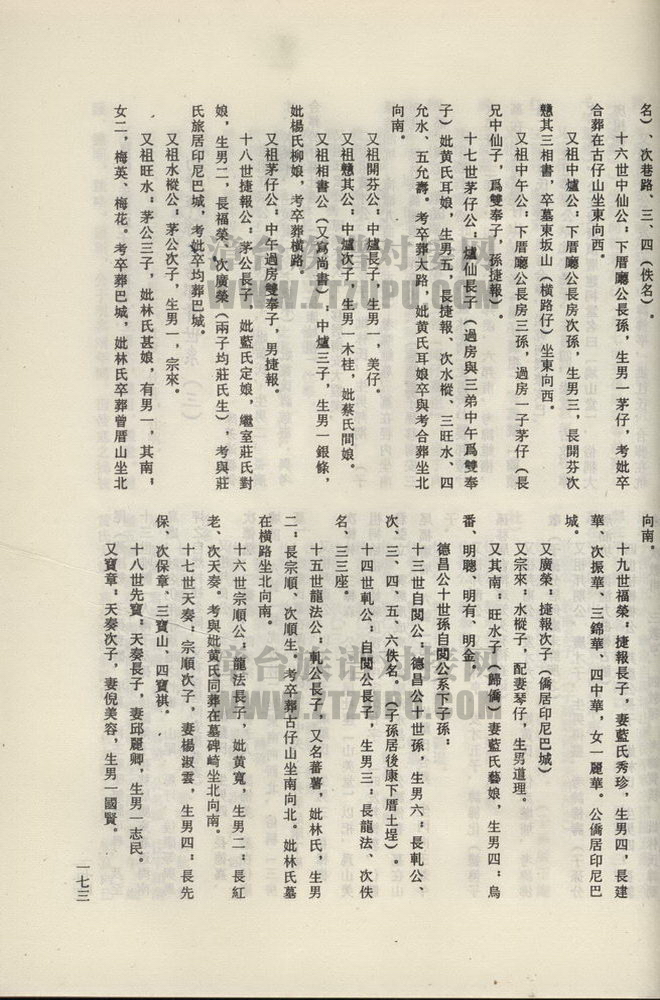 名)、次巷路、三、四(佚名)。
十六世中仙公:下厝廳公長孫,生男一茅仔,考妣卒
合葬在古仔山坐東向西。
又祖中爐公:下厝廳公長房次孫,生男三,長開芬次
戇其三相書,卒墓東坂山(橫路仔)坐東向西。
又祖中午公:下厝廳公長房三孫,過房一子茅仔(長
兄中仙子,爲雙奉子,孫捷報)。
十七世茅仔公:爐仙長子(過房與三弟中午爲雙奉
子)妣黃氏耳娘,生男五,長捷報、次水樅、三旺水、四
允水、五允壽。考卒葬大路,妣黃氏耳娘卒與考合葬坐北
向南。
又祖開芬公:中爐長子,生男一,美仔。
又祖戇其公:中爐次子,生男一木桂,妣蔡氏間娘。
又祖相書公(又寫尚書):中爐三子,生男一銀條,
妣楊氏柳娘,考卒葬橫路。
又祖茅仔公:中午過房雙奉子,男捷報。
十八世捷報公:茅公長子,妣藍氏定娘,繼室莊氏對
娘,生男二,長福榮、次廣榮(兩子均莊氏生),考與莊
氏旅居印尼巴城,考妣卒均葬巴城。
又祖水樅公:茅公次子,生男一,宗來。
又祖旺水:茅公三子,妣林氏甚娘,有男一,其南;
女二,梅英、梅花。考卒葬巴城,妣林氏卒葬曾厝山坐北
向南。
十九世福榮:捷報長子,妻藍氏秀珍,生男四,長建
華、次振華、三錦華、四中華,女一麗華。公僑居印尼巴
城。
又廣榮:捷報次子(僑居印尼巴城)
又宗來:水樅子,配妻琴仔,生男道理。
又其南:旺水子(歸僑)妻藍氏藝娘,生男四:烏
番、明聰、明有、明金。
德昌公十世孫自閱公系下子孫:
十三世自閱公 德昌公十世孫,生男六:長軋公、
次、三、四、五、六佚名。(子孫居後康下厝土埕)。
十四世軋公:自閱公長子,生男三:長龍法、次佚
名、三三座。
十五世龍法公:軋公長子,又名蕃薯,妣林氏,生男
二:長宗順、次順生。考卒葬古仔山坐南向北。妣林氏墓
在橫路坐北向南。
十六世宗順公:龍法長子,妣黃寬,生男二:長紅
老、次天奏。考與妣黃氏同葬在墓碑崎坐北向南。
十七世天奏:宗順次子,妻楊淑雲,生男四:長先
保、次保章、三寶山、四寶祺。
十八世先寶:天奏長子,妻邱麗卿,生男一志民。
又寶章:天奏次子,妻倪美容,生男一國賢。
一七三
漳台族譜对接网
WWW.ZTZUPU.COM
漳台族譜对接网
WWW.ZTZUPU.COM